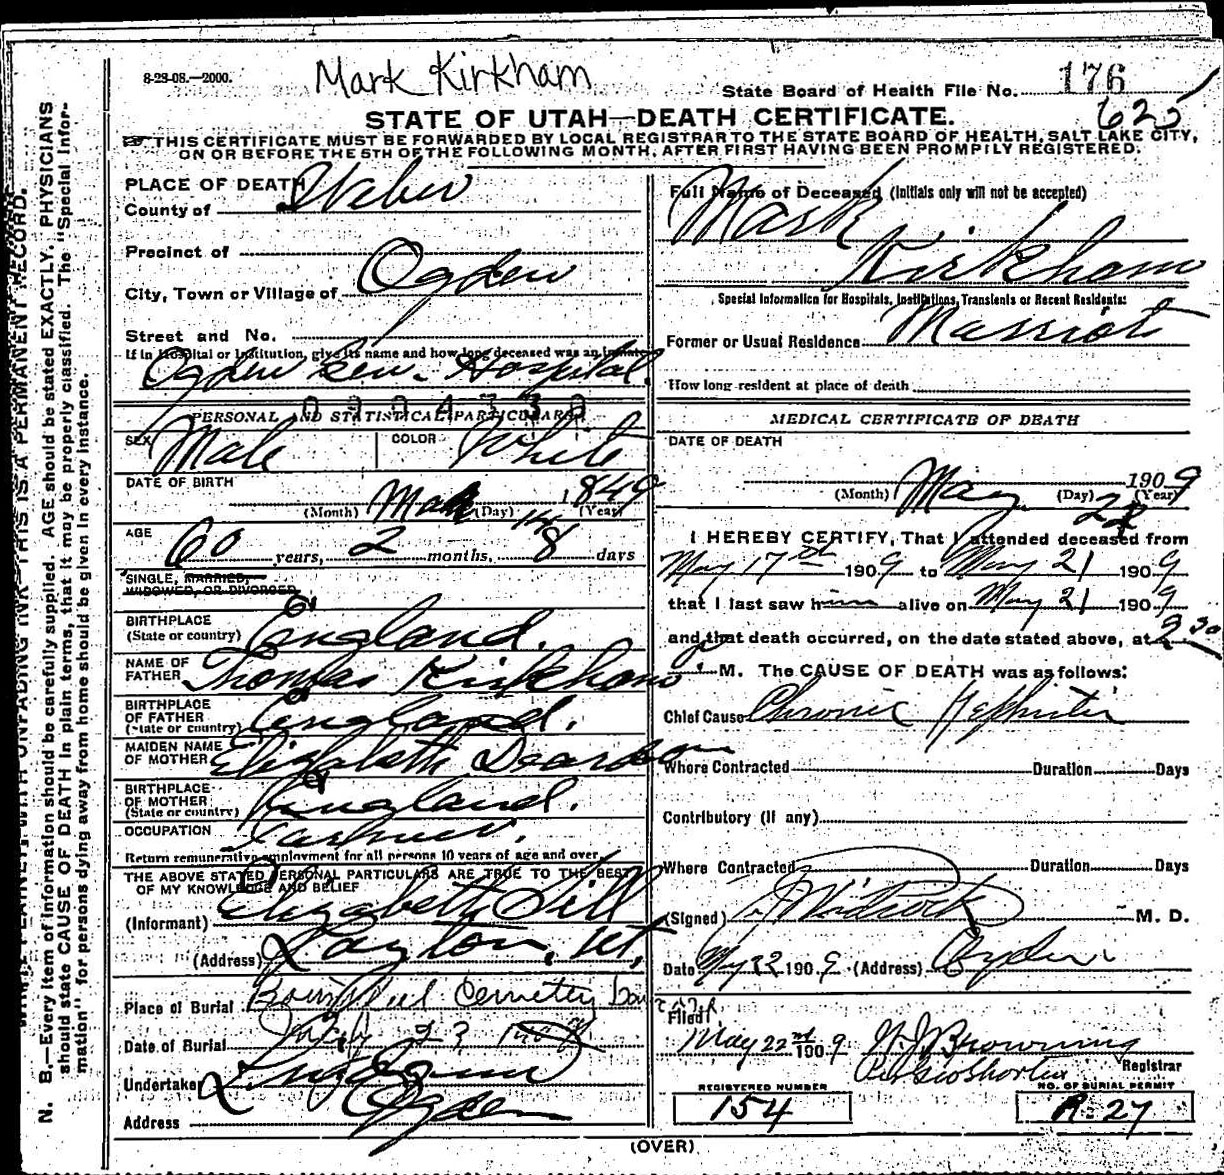 8-23-08.—2000.
Mark Kirkham
State Board of Health File No. 176
625
STATE OF UTAH—DEATH CERTIFICATE.
THIS CERTIFICATE MUST BE FORWARDED BY LOCAL REGISTRAR TO THE STATE BOARD OF HEALTH, SALT LAKE CITY,
ON OR BEFORE THE 5TH OF THE FOLLOWING MONTH, AFTER FIRST HAVING BEEN PROMPILY REGISTERED.
PLACE OF DEATH
County of Weber
Precinct of
City, Town or Village of Ogden
Street and No.
If in Hospital or Institution, give its name and how long deceased was an inmate
Ogden Gen. Hospital
PERSONAL AND STATISTICAL PARTICULARS
SEX Male COLOR White
DATE OF BIRTH
(Month) Mar (Day) 14 (Year) 1849
AGE 60 years, 2 months, 8 days
SINGLE, MARRIED,
WIDOWED, OR DIVORCED
BIRTHPLACE
(State or country) England.
NAME OF
FATHER Thomas Kirkham
BIRTHPLACE
OF FATHER
(State or country) England.
MAIDEN NAME
OF MOTHER Elizabeth Dearden
BIRTHPLACE
OF MOTHER
(State or country) England.
OCCUPATION Farmer.
Return remunerative employment for all persons 10 years of age and over.
THE ABOVE STATED PERSONAL PARTICULARS ARE TRUE TO THE BEST
OF MY KNOWLEDGE AND BELIEF
(Informant) Elizabeth Sill
(Address) Layton, Ut,
Place of Burial Bountiful Cemetery
Date of Burial 23
Undertaker
Address Ogden
Full Name of Deceased (Initials only will not be accepted)
Mark
Kirkham
Special Information for Hospitals, Institutions, Transients or Recent Residents:
Former or Usual Residence Marriot
How long resident at place of death
MEDICAL CERTIFICATE OF DEATH
DATE OF DEATH
1909
(Month) May (Day) 22 (Year)
I HEREBY CERTIFY, That I attended deceased from
May 17th 1909 to May 21 1909
that I last saw him alive on May 21 1909
and that death occurred, on the date stated above, at 2.30
M. The CAUSE OF DEATH was as follows:
Chief Cause Chronic Nephritis
Where Contracted Duration Days
Contributory (if any)
Where Contracted Duration Days
(Signed) M. D.
Date May 22 1909 (Address) Ogden
Filed
May 22nd 1909 Browning
Per Geo Shorten Registrar
REGISTERED NUMBER NO. OF BURIAL PERMIT
154 A 27
(OVER)
N. B.—Every item of information should be carefully supplied. AGE should be stated EXACTLY. PHYSICIANS
should state CAUSE OF DEATH in plain terms, that it may be properly classified. The "Special Infor-
mation" for persons dying away from home should be given in every instance.
WRITE PLAINLY WITH UNFADING INK—THIS IS A PERMANENT RECORD.